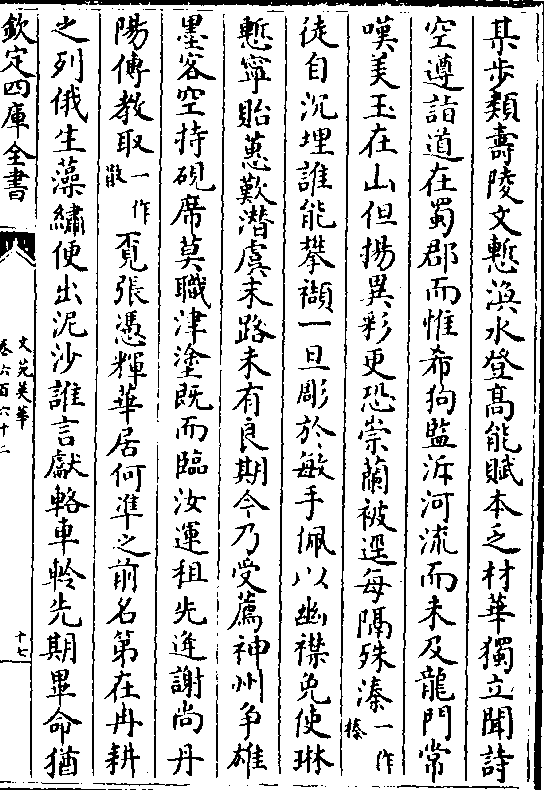 某步類壽陵文慙渙水登髙能賦本乏材華獨立聞詩
空遵詣道在蜀郡而惟希狗監泝河流而未及龍門常
嘆美玉在山但揚異彩更恐崇蘭被逕每隔殊溱一作榛
徒自沉埋誰能攀擷一旦彫於敏手佩以幽襟免使琳
慙寧貽蕙歎潜虞末路未有良期今乃受薦神州争雄
墨客空持硯席莫職津塗既而臨汝運租先逢謝尚丹
陽傳教取一作散覔張憑輝華居何準之前名第在冉耕
之列俄生藻繡便出泥沙誰言獻輅車軨先期畢命猶
欽定四庫全書
文苑英華
卷六百六十二
十七